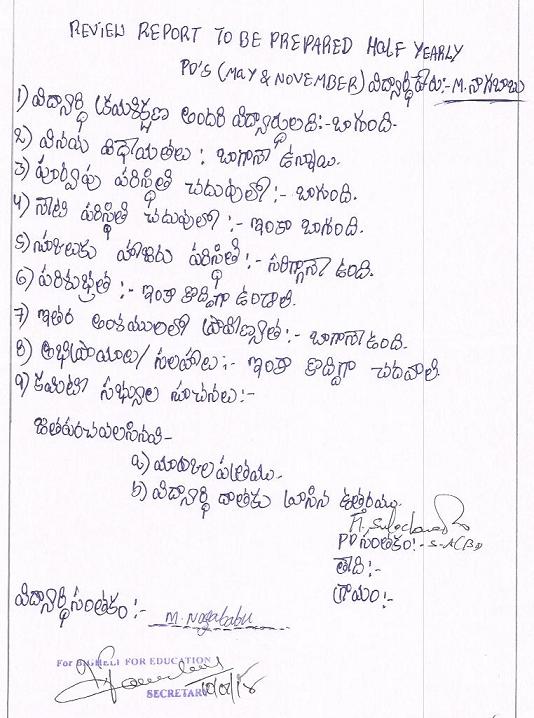 REVIEW REPORT TO BE PREPARED HALF YEARLY
PD'S (MAY & NOVEMBER) విద్యార్థి పేరు:- M. నాగబాబు
1) విద్యార్థి క్రమశిక్షణ అందరి విద్యార్థులది:- బాగుంది.
2) వినయ విధేయతలు: బాగానే ఉన్నాయి.
3) పూర్వపు పరిస్థితి చదువులో:- బాగుంది.
4) నేటి పరిస్థితి చదువులో:- ఇంకా బాగుంది.
5) స్కూలుకు హాజరు పరిస్థితి:- సరిగ్గానే ఉంది.
6) పరిశుభ్రత:- ఇంకా కొద్దిగా ఉండాలి.
7) ఇతర అంశములలో ప్రావీణ్యత:- బాగానే ఉంది.
8) అభిప్రాయాలు/ సలహాలు:- ఇంకా కొద్దిగా చదవాలి
9) కమిటీ సభ్యుల సూచనలు:-
జతపరచవలసినవి-
a) మార్కుల పత్రము.
b) విద్యార్థి దాతకు వ్రాసిన ఉత్తరము.
PD సంతకం:-
తేది:-
గ్రామం:-
విద్యార్థి సంతకం:- M. Nagababu
FOR EDUCATION
SECRETARY